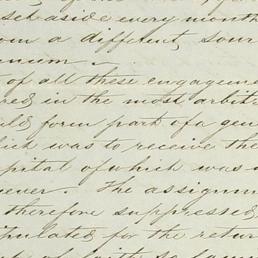 set aside every month
from a different, sour
annum.
of all these engageme
red in the most arbitr
ld form part of a gen
hich was to receive the
pital of which was
ever. The assignm
therefore suppressed
ipulated for the retur